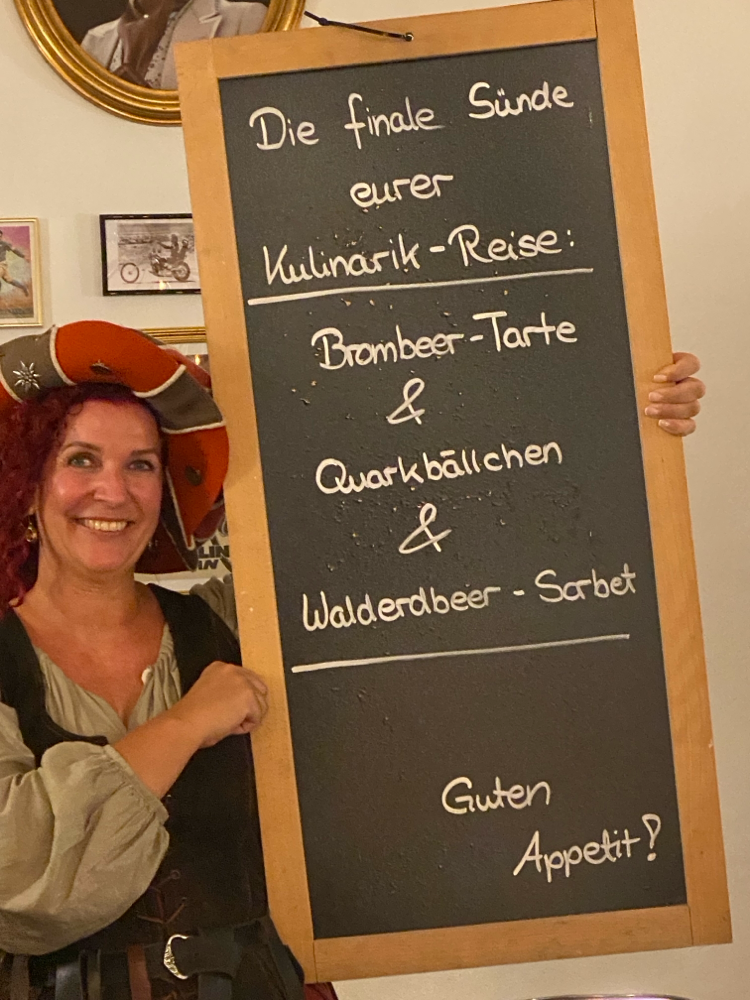 Die finale Sünde
eurer
Kulinarik-Reise:
Brombeer-Tarte
&
Quarkbällchen
&
Walderdbeer-Sorbet
Guten
Appetit!